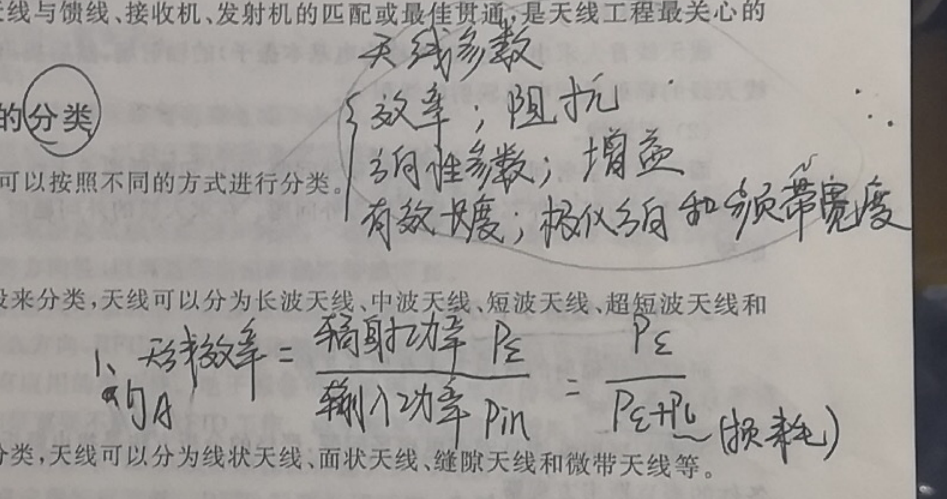 线与馈线、接收机、发射机的匹配或最佳贯通,是天线工程最关心的
天线参数
的分类
效率;阻抗
方向性参数;增益
可以按照不同的方式进行分类。
有效长度;极化方向和频带宽度
段来分类,天线可以分为长波天线、中波天线、短波天线、超短波天线和
1、天线效率 = 辐射功率 PΣ / 输入功率 Pin = PΣ / PΣ+PL (损耗)
ηA
分类,天线可以分为线状天线、面状天线、缝隙天线和微带天线等。